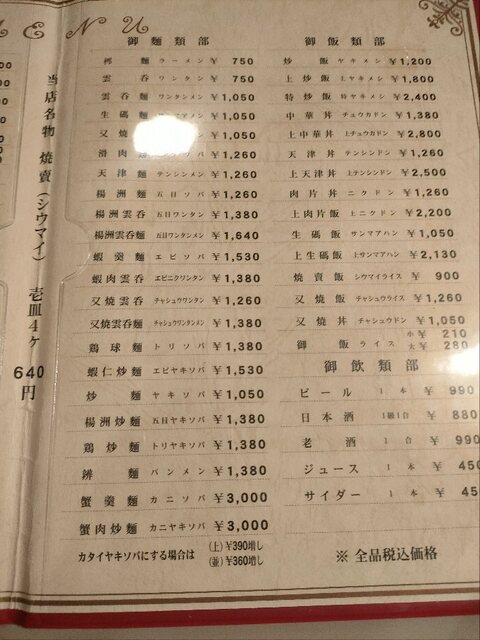 MENU
当店名物 焼賣(シウマイ) 壱皿4ケ 640円
御麺類部
麺 ラーメン ¥ 750
雲呑 ワンタン ¥ 750
雲呑麺 ワンタンメン ¥1,050
生碼麺 ¥1,050
叉焼 ¥1,050
滑肉麺 ソバ ¥1,260
天津麺 テンシンメン ¥1,260
楊洲麺 五目ソバ ¥1,260
楊洲雲呑 五目ワンタン ¥1,380
楊洲雲呑麺 五目ワンタンメン ¥1,640
蝦羹麺 エビソバ ¥1,530
蝦肉雲呑 エビニクワンタン ¥1,380
叉焼雲呑 チャシュウワンタン ¥1,260
叉焼雲呑麺 チャシュウワンタンメン ¥1,380
鶏球麺 トリソバ ¥1,380
蝦仁炒麺 エビヤキソバ ¥1,530
炒麺 ヤキソバ ¥1,050
楊洲炒麺 五目ヤキソバ ¥1,380
鶏炒麺 トリヤキソバ ¥1,380
辨麺 バンメン ¥1,380
蟹羹麺 カニソバ ¥3,000
蟹肉炒麺 カニヤキソバ ¥3,000
カタイヤキソバにする場合は (上)¥390増し
(並)¥360増し
御飯類部
炒飯 ヤキメシ ¥1,200
上炒飯 上ヤキメシ ¥1,800
特炒飯 特ヤキメシ ¥2,400
中華丼 チュウカドン ¥1,380
上中華丼 上チュウカドン ¥2,800
天津丼 テンシンドン ¥1,260
上天津丼 上テンシンドン ¥2,500
肉片飯 ニクドン ¥1,260
上肉片飯 上ニクドン ¥2,200
生碼飯 サンマアハン ¥1,050
上生碼飯 上サンマアハン ¥2,130
焼賣飯 シウマイライス ¥ 900
叉焼飯 チャシュウライス ¥1,260
叉焼丼 チャシュウドン ¥1,050
御飯 ライス 小¥ 210
大¥ 280
御飲類部
ビール 1本 ¥ 990
日本酒 1級1合 ¥ 880
老酒 1合 ¥ 990
ジュース 1本 ¥ 450
サイダー 1本 ¥ 45
※全品税込価格